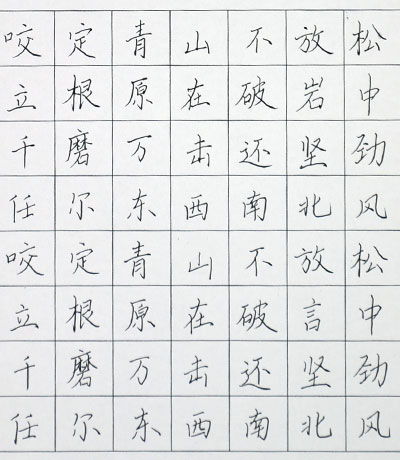 咬定青山不放松
立根原在破岩中
千磨万击还坚劲
任尔东西南北风
咬定青山不放松
立根原在破言中
千磨万击还坚劲
任尔东西南北风